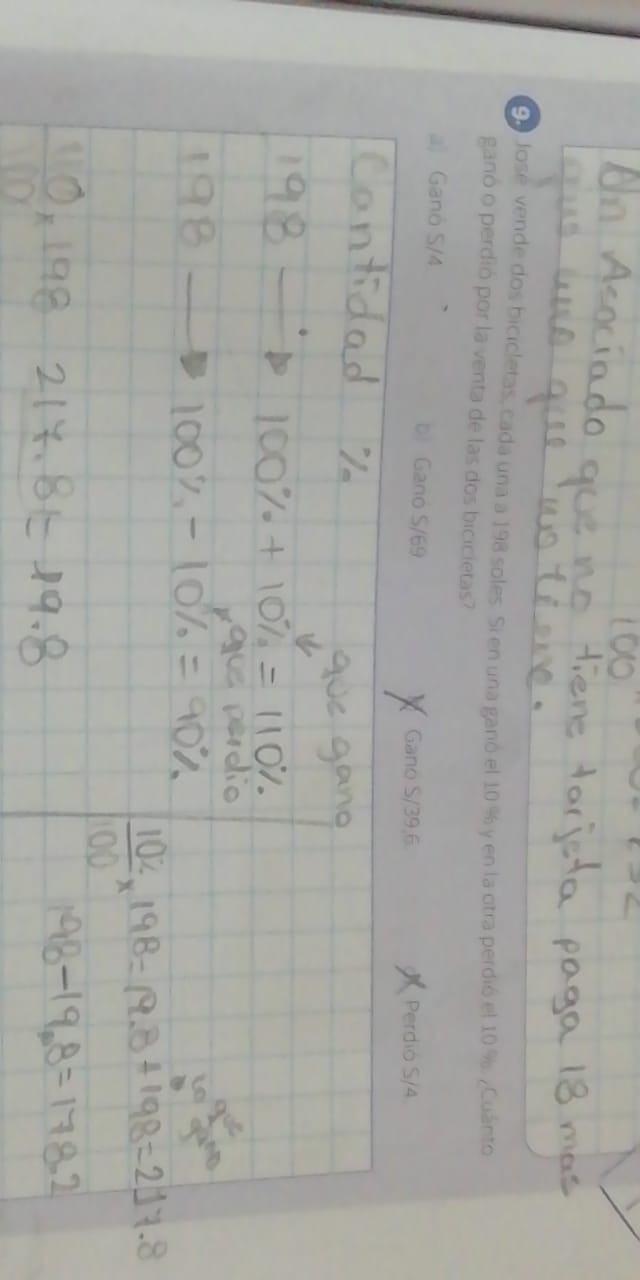 100
Un Asociado que no tiene tarjeta paga 18 mas
que uno que no tiene.
9. José vende dos bicicletas, cada una a 198 soles. Si en una ganó el 10 % y en la otra perdió el 10 %. ¿Cuánto
ganó o perdió por la venta de las dos bicicletas?
a) Ganó S/4. b) Ganó S/69 Ganó S/39,6. Perdió S/4.
Cantidad %
que gano
198 → 100% + 10% = 110%
que perdio
198 → 100% - 10% = 90%
lo que gano
10%/100 x 198 = 19.8 + 198 = 217.8
198 - 19.8 = 178.2
110/100 x 198 217.8 = 19.8